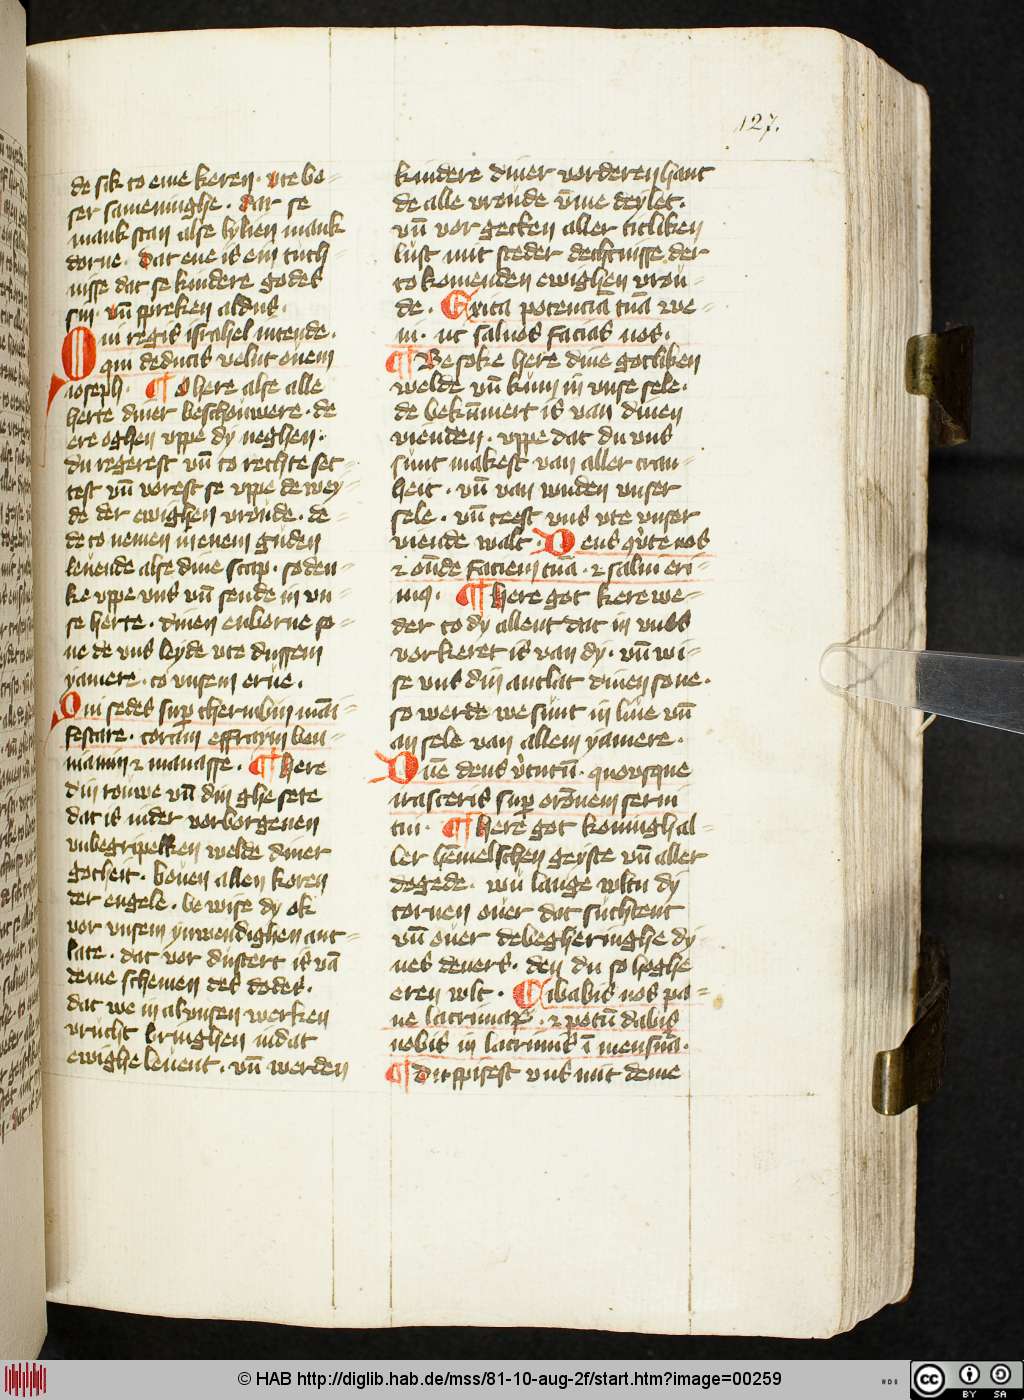 127.
de sik to eme keren · vte bo-
ser sameninghe · dar se
mank stan alse lylien mank
dorne · dat ene is ein tuch-
nisse dat se kindere godes
sin · vn̄ spreken aldus ·
Qui regis israhel intende ·
qui deducis velut ouem
ioseph · ¶ O here alse alle
herte diner beschouwere · de
ere oghen vppe dy neghen ·
du regerest vn̄ to rechte set-
test vn̄ vorest se vppe de wey-
de der ewighen vroude · de-
de to nemen in enem guden
leuende alse dine scap · soden-
ke vppe vns vn̄ sende in vn-
se herte · dinen enborne so-
ne de vns leyde vte dussem
yamere · to vnsem erue ·
Qui sedes suꝑ cherubin māi-
festare · coram effraym ben-
niamin ⁊ manasse · ¶ here
din touwe vn̄ din ghesete
dat is in der vorborgenen
vnbegripelken welde diner
gotheit · bouen allen koren
der engele · bewise dy ok
vor vnsem ynwendighen ant-
late · dat vor dustert is vā
deme schemen des dodes ·
dat we in al vnsen werken
vrucht bringhen in dat
ewighe leuent · vn̄ werden
kindere diner vorderen hant
de alle vroude v̄me deylet ·
vn̄ vorgetten aller titliken
lust mit steder dechtnisse der
to komenden ewighen vrou-
de · Excita potenciā tuā ve-
ni · ut saluos facias nos ·
¶ Besoke here dine gotliken
welde vn̄ kum in vnse sele ·
de bekūmert is van dinen
vienden · vppe dat du vns
sunt makest van aller cran-
heit · vn̄ van wnden vnser
sele · vn̄ teest vns vte vnser
viende walt · Deus ꝯūte nos
⁊ on̄de faciem tuā · ⁊ salui eri-
mꝰ · ¶ here got kere we-
der to dy allent dat in vns
vorkeret is van dy · vn̄ wi-
se vns din antlat dinen sone ·
so werde we sunt in liue vn̄
an sele van allem yamere ·
Dn̄e deus v̓tutū · quousque
irasceris suꝑ orōnem serui
tui · ¶ here got koningh al-
ler hēmelschen geyste vn̄ aller
dogede · wu lange wltu dy
tornen ouer dat suchtent
vn̄ ouer de begheringhe dy-
nes deners · den du so hoghe
eren wlt · Cibabis nos pa-
ne lacrimaꝝ · ⁊ potū dabis
nobis in lacrimis ī mensurā ·
¶ Du spisest vns mit deme
© HAB http://diglib.hab.de/mss/81-10-aug-2f/start.htm?image=00259
HAB
cc
BY SA